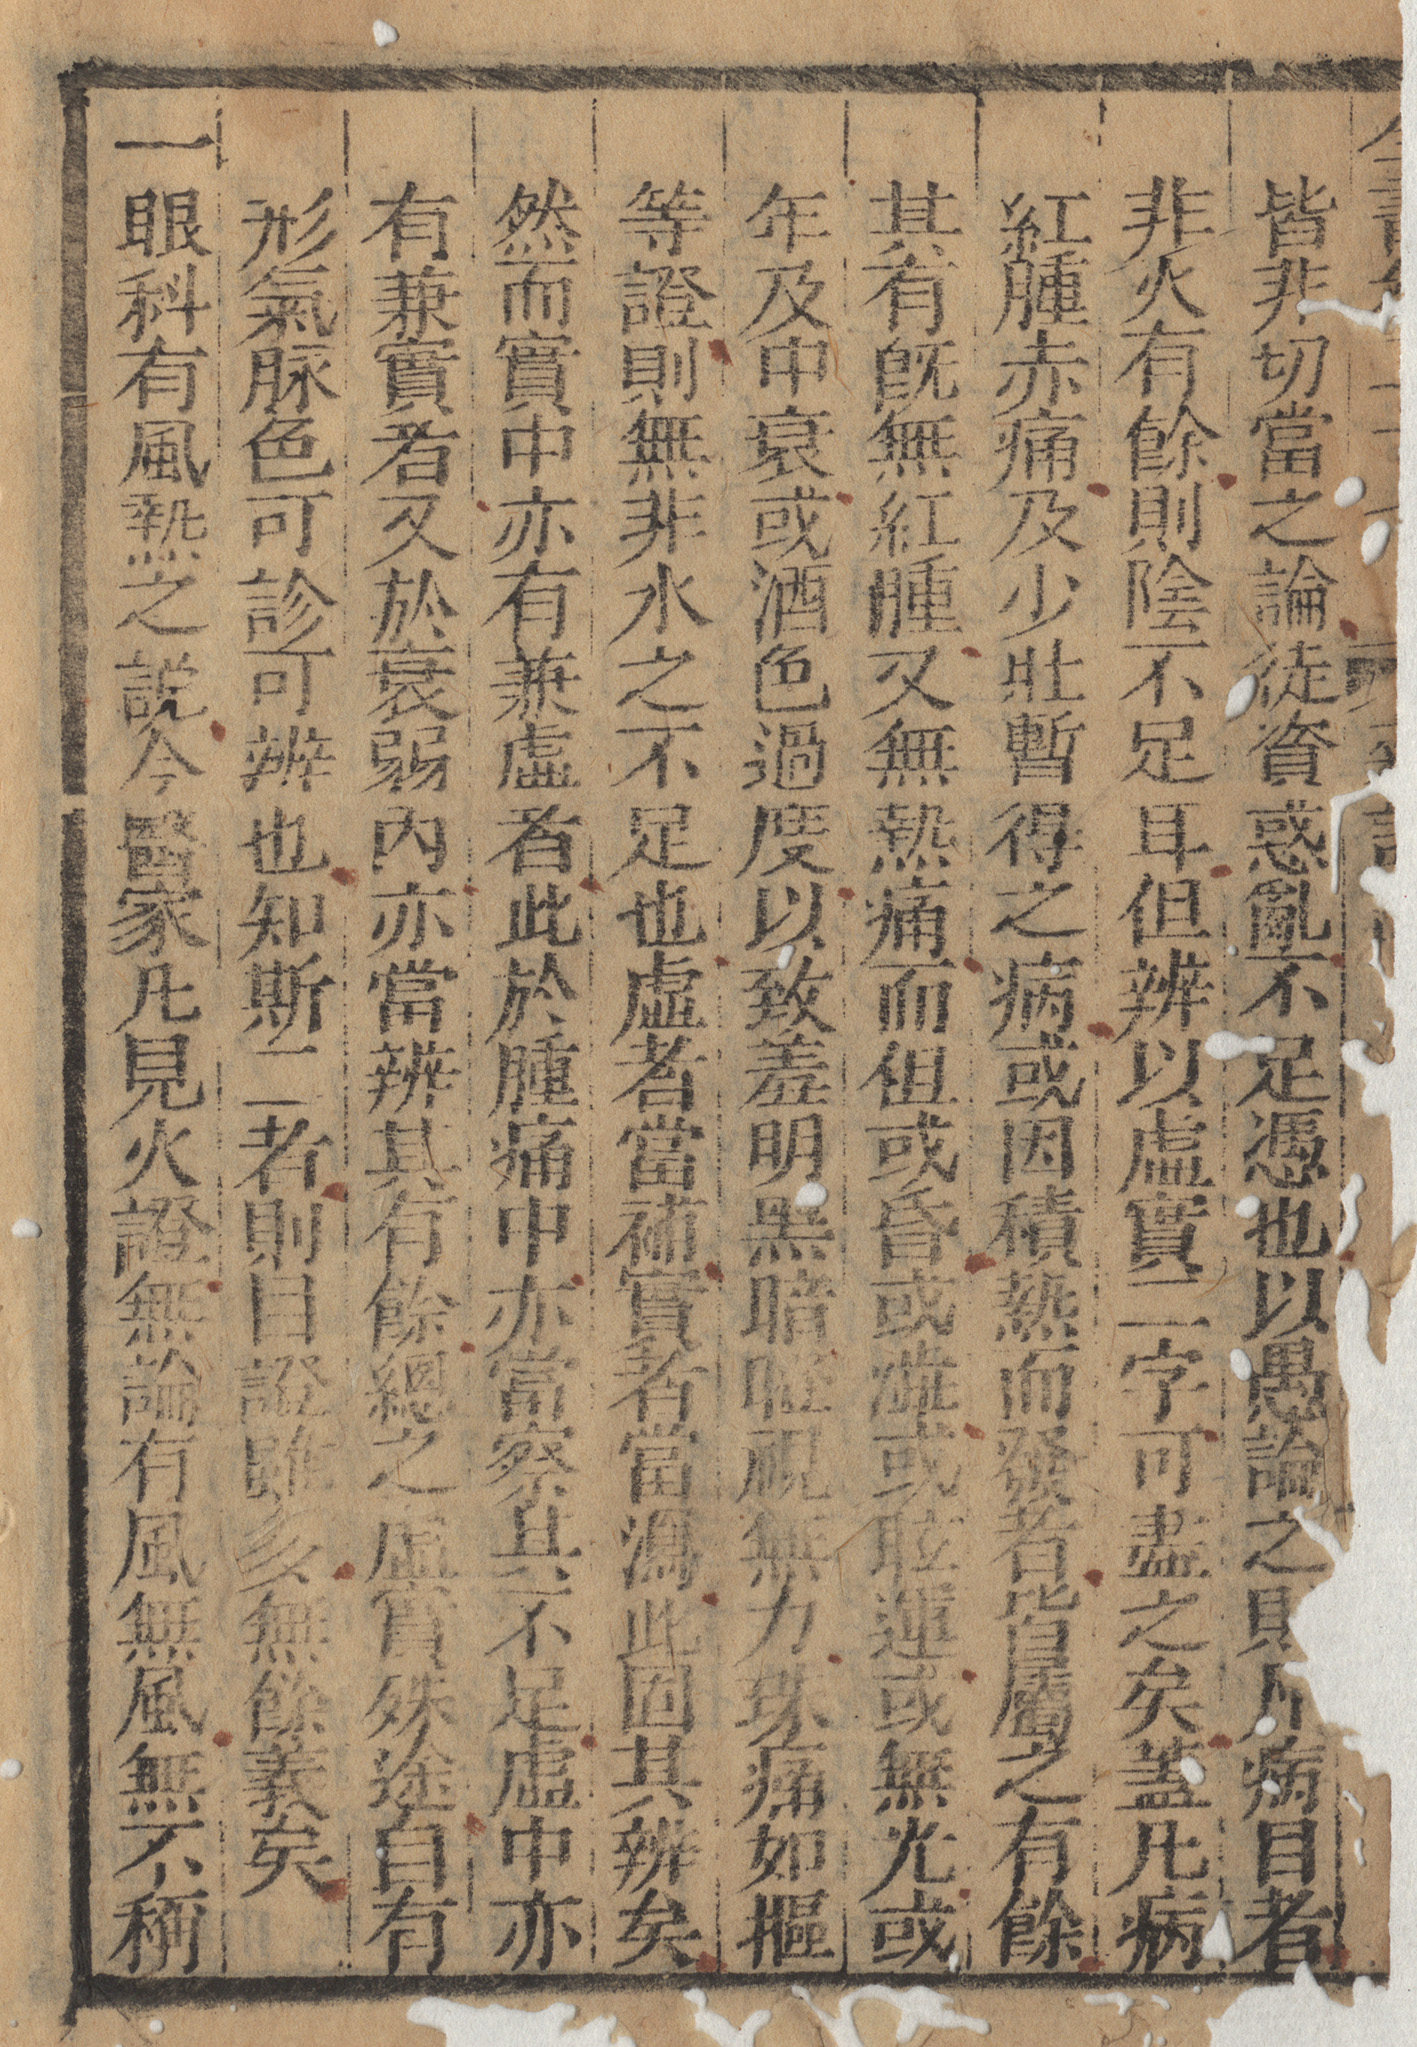 皆非切當之論徒資惑亂不足憑也以愚論之則凡病目者
非火有餘則陰不足耳但辨以虛實二字可盡之矣蓋凡病
紅腫赤痛及少壯暫得之病或因積熱而發者皆屬之有餘
其有既無紅腫又無熱痛而但或昏或澁或眩運或無光或
年及中衰或酒色過度以致羞明黑暗瞪視無力珠痛如摳
等證則無非水之不足也虛者當補實者當瀉此固其辨矣
然而實中亦有兼虛者此於腫痛中亦當察其不足虛中亦
有兼實者又於衰弱內亦當辨其有餘總之虛實殊途自有
形氣脉色可診可辨也知斯二者則目證雖多無餘義矣
一眼科有風熱之說今醫家凡見火證無論有風無風無不稱